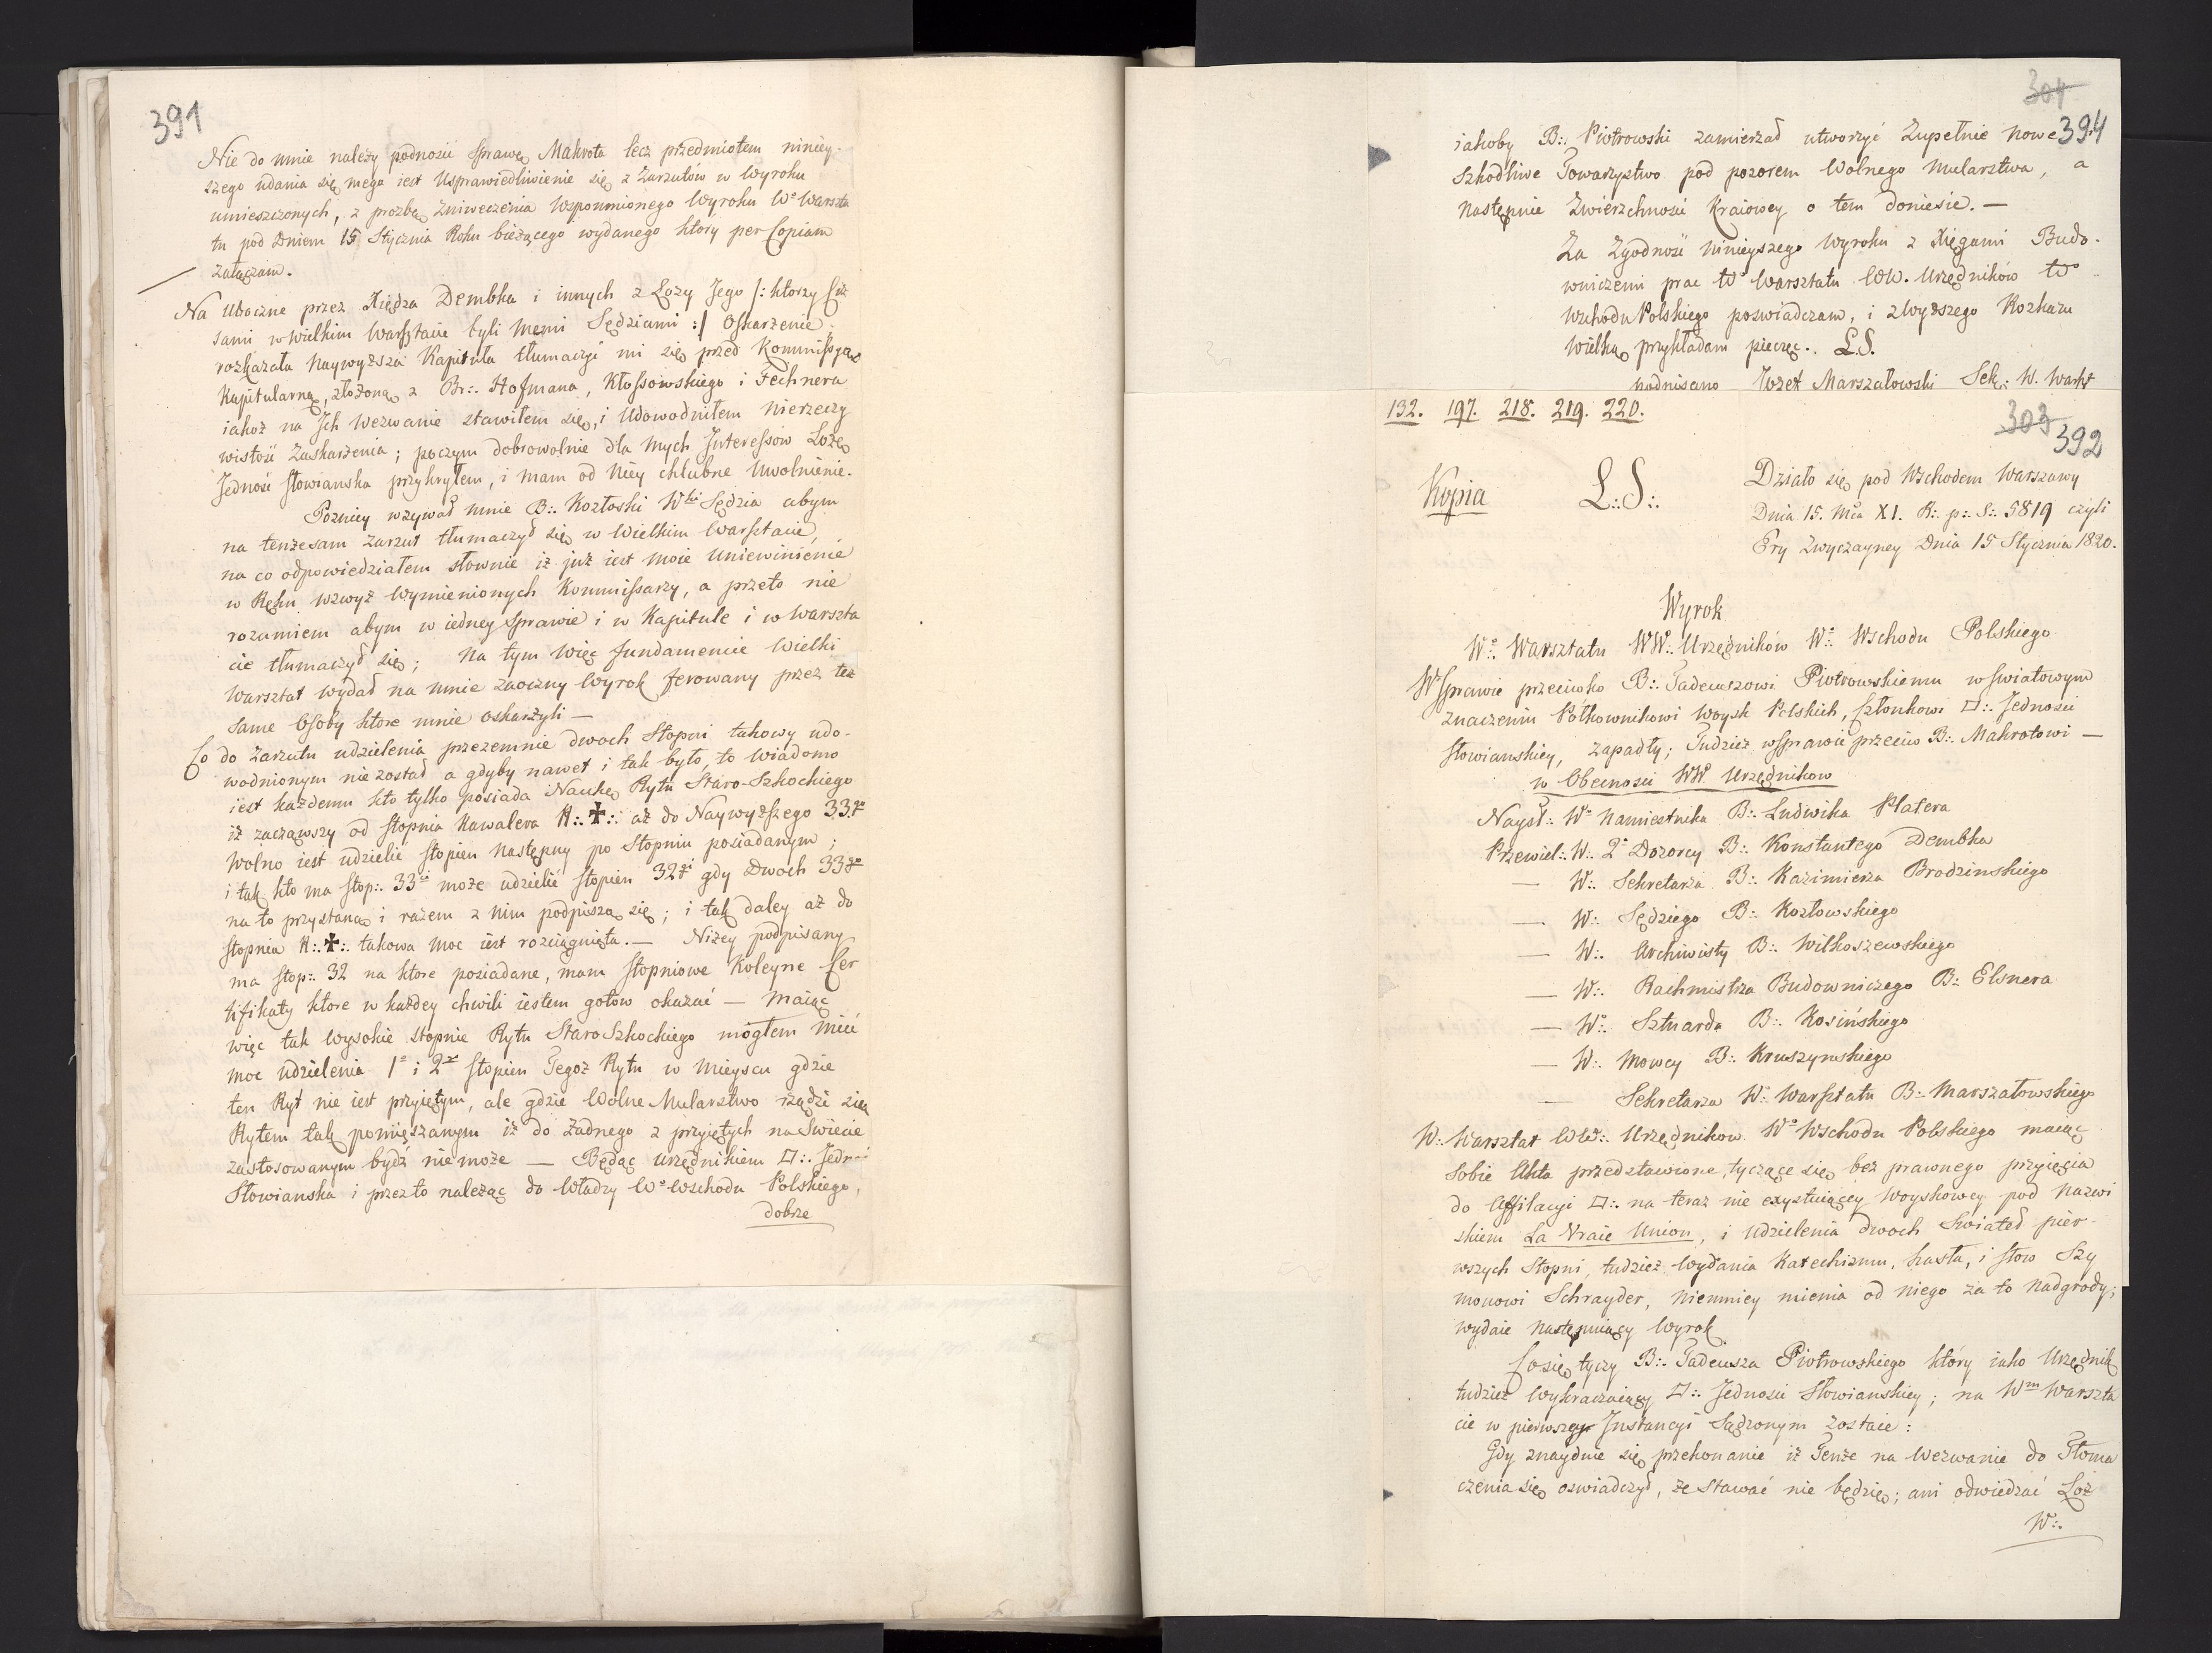 391
Nie do mnie należy podnosić Sprawę Makrota lecz przedmiotem niniey-
szego udania się mego iest Usprawiedliwienie się z Zarzutów w Wyroku
umieszczonych, z prozbą Zniweczenia Wspomnionego Wyroku Wo Warszta
tu pod Dniem 15 Stycznia Roku bieżącego wydanego który per Copiam
załączam.
Na Uboczne przez Xiędza Dembka i innych z Loży Jego /: ktorzy Ciż
sami w Wielkim Warsztacie byli Memi Sędziami :/ Oskarżenie
rozkazała Naywyższa Kapituła tłumaczyć mi się przed Kommissyą
Kapitularną, złożoną z Br:. Hofmana, Kłossowskiego i Fechnera
iakoż na Jch Wezwanie stawiłem się, i Udowodniłem Nierzeczy
wistość Zaskarżenia; poczym dobrowolnie dla Mych Jnteressow Lożę
Jedność Słowianska przykryłem, i mam od Niey chlubne Uwolnienie.
Pozniey wzywał mnie B:. Kozłoski Wki Sędzia abym
na tenżesam Zarzut tłumaczył się w Wielkim Warsztacie,
na co odpowiedziałem słownie iż już iest moie Uniewinienie
w Ręku wzwyż Wymienionych Kommissarzy, a przeto nie
rozumiem abym w iedney Sprawie i w Kapitule i w Warszta
cie tłumaczył się; Na tym Więc fundamencie Wielki
Warsztat wydał na mnie zaoczny Wyrok ferowany przez też
same Osoby ktore mnie oskarżyli —
Co do Zarzutu udzielenia przezemnie dwoch Stopni takowy udo-
wodnionym nie został a gdyby nawet i tak było, to Wiadomo
iest każdemu kto tylko posiada Naukę Rytu Staro-Szkockiego
iż zacząwszy od Stopnia Kawalera R:. ✠:. aż do Naywyższego 33.go
Wolno iest udzielić stopien Następny po Stopniu posiadanym;
i tak kto ma Stop:. 33ci może udzielić stopien 32gi gdy Dwoch 33go
na to przystaną i razem z Nim podpiszą się; i tak daley aż do
Stopnia R:. ✠:. takowa Moc iest rozciągnięta. — Niżey podpisany
ma Stop:. 32 na ktore posiadane, mam Stopniowe Koleyne Cer
tifikaty ktore w każdey chwili iestem gotow okazać — Maiąc
więc tak Wysokie Stopnie Rytu Staro Szkockiego mogłem Mieć
moc udzielenia 1o i 2go Stopien Tegoż Rytu w Mieyscu gdzie
ten Ryt nie iest przyiętym, ale gdzie Wolne Mularstwo rządzi się
Rytem tak pomięszanym iż do żadnego z przyiętych na Swiecie
zastosowanym bydź nie może — Będąc Urzędnikiem □:. Jedn-ć
Słowianska i przez to należąc do Władzy Wo Wschodu Polskiego,
dobrze
304
394
iakoby B:. Piotrowski zamierzał utworzyć Zupełnie Nowe
Szkodliwe Towarzystwo pod pozorem Wolnego Mularstwa, a
Następnie Zwierzchności Kraiowey o tem doniesie. —
Za Zgodność Ninieyszego Wyroku z Xięgami Budo-
wniczemi prac Wo Warsztatu WW. Urzędników Wo
Wschodu Polskiego poświadczam, i z Wyższego Rozkazu
Wielką przykładam pieczęć. L.S.
podpisano Jozef Marszałowski Sek:. W. Warszt
132. 197. 218. 219. 220.
303
392
Kopia
L:.S:.
Działo się pod Wschodem Warszawy
Dnia 15. Mca XI. R:. p:. S:. 5819 czyli
Ery Zwyczayney Dnia 15 Stycznia 1820.
Wyrok
Wo:. Warsztatu WW:. Urzędników Wo:. Wschodu Polskiego
W Sprawie przeciwko B:. Tadeuszowi Piotrowskiemu w światowym
znaczeniu Półkownikowi Woysk Polskich, Członkowi □:. Jedności
Słowianskiey, zapadły; Tudzież w Sprawie przeciw B:. Makrotowi —
w Obecności WW. Urzędnikow
Nayśł:. Wo Namiestnika B:. Ludwika Platera
Przewiel:. W:. 2o Dozorcy B:. Konstantego Dembka
— W:. Sekretarza B:. Kazimierza Brodzinskiego
— W:. Sędziego B:. Kozłowskiego
— W:. Archiwisty B:. Wilkoszewskiego
— W:. Rachmistrza Budowniczego B:. Elsnera
— Wo:. Sztuarda B:. Kosińskiego
— W:. Mowcy B:. Kruszynskiego
— Sekretarza W:. Warsztatu B:. Marszałowskiego
W:. Warsztat WW:. Urzędnikow Wo Wschodu Polskiego maiąc
Sobie Akta przedstawione, tyczące się bez prawnego przyięcia
do Affilacyi □:. na teraz nie exystuiącey Woyskowey pod Nazwi
skiem La Vraie Union, i udzielenia dwoch Swiateł pier-
wszych Stopni, tudzież Wydania Katechizmu, hasła, i słow Szy
monowi Schrayder, niemniey mienia od niego za to Nadgrody;
wydaie Następuiący Wyrok
Co się tyczy B:. Tadeusza Piotrowskiego który iako Urzędnik
tudzież Wykraczaiący □:. Jedności Słowianskiey; na Wm Warszta
cie w pierwszey Jnstancyi Sądzonym zostaie:
Gdy znayduie się przekonanie iż Tenże na Wezwanie do Tłoma
czenia się oswiadczył, że Stawać nie będzie; ani odwiedzać Loż
W:.